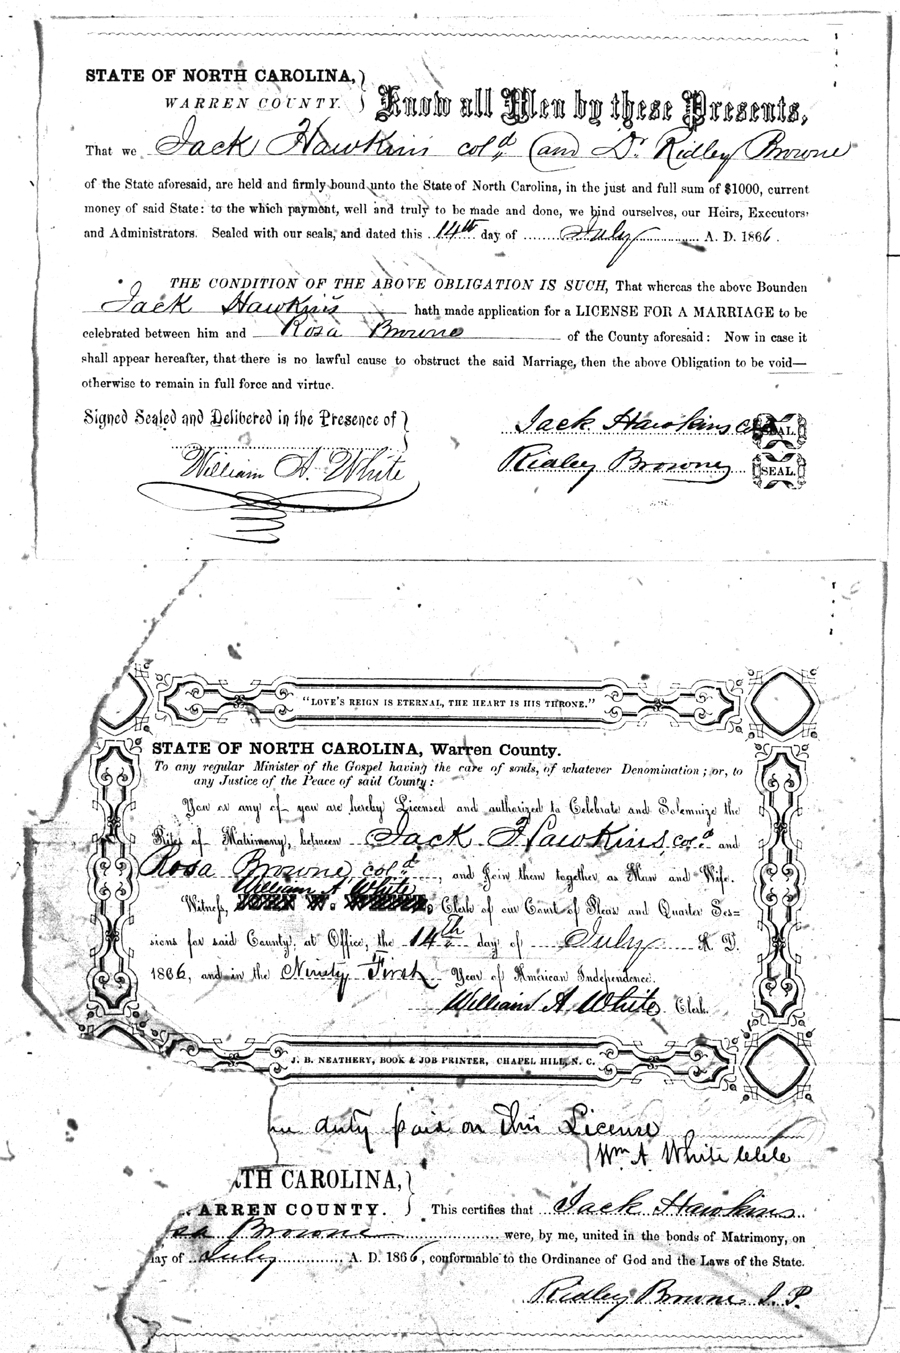 STATE OF NORTH CAROLINA,
WARREN COUNTY.
Know all Men by these Presents,
That we Jack Hawkins col.d (and Dr. Ridley Browne
of the State aforesaid, are held and firmly bound unto the State of North Carolina, in the just and full sum of $1000, current
money of said State: to the which payment, well and truly to be made and done, we bind ourselves, our Heirs, Executors
and Administrators. Sealed with our seals, and dated this 14th day of July A. D. 1866.
THE CONDITION OF THE ABOVE OBLIGATION IS SUCH, That whereas the above Bounden
Jack Hawkins hath made application for a LICENSE FOR A MARRIAGE to be
celebrated between him and Rosa Browne of the County aforesaid: Now in case it
shall appear hereafter, that there is no lawful cause to obstruct the said Marriage, then the above Obligation to be void—
otherwise to remain in full force and virtue.
Signed Sealed and Delibered in the Presence of
Jack Hawkins col.d SEAL.
William A. White
Ridley Browne SEAL.
"LOVE'S REIGN IS ETERNAL, THE HEART IS HIS THRONE."
STATE OF NORTH CAROLINA, Warren County.
To any regular Minister of the Gospel having the care of souls, of whatever Denomination; or, to
any Justice of the Peace of said County:
You or any of you are hereby Licensed and authorized to Celebrate and Solemnize the
Rites of Matrimony, between Jack Hawkins, col.d and
Rosa Browne, col.d, and Join them together as Man and Wife.
William A White
Witness, Clerk of our Court of Pleas and Quarter Ses=
sions for said County, at Office, the 14th day of July A. D.
1866, and in the Ninety First Year of American Independence.
William A. White Clerk.
J. B. NEATHERY, BOOK & JOB PRINTER, CHAPEL HILL, N. C.
duty paid on this License
Wm A. White Clk
TH CAROLINA,
ARREN COUNTY. This certifies that Jack Hawkins
sa Browne were, by me, united in the bonds of Matrimony, on
day of July A. D. 1866, conformable to the Ordinance of God and the Laws of the State.
Ridley Browne J. P.